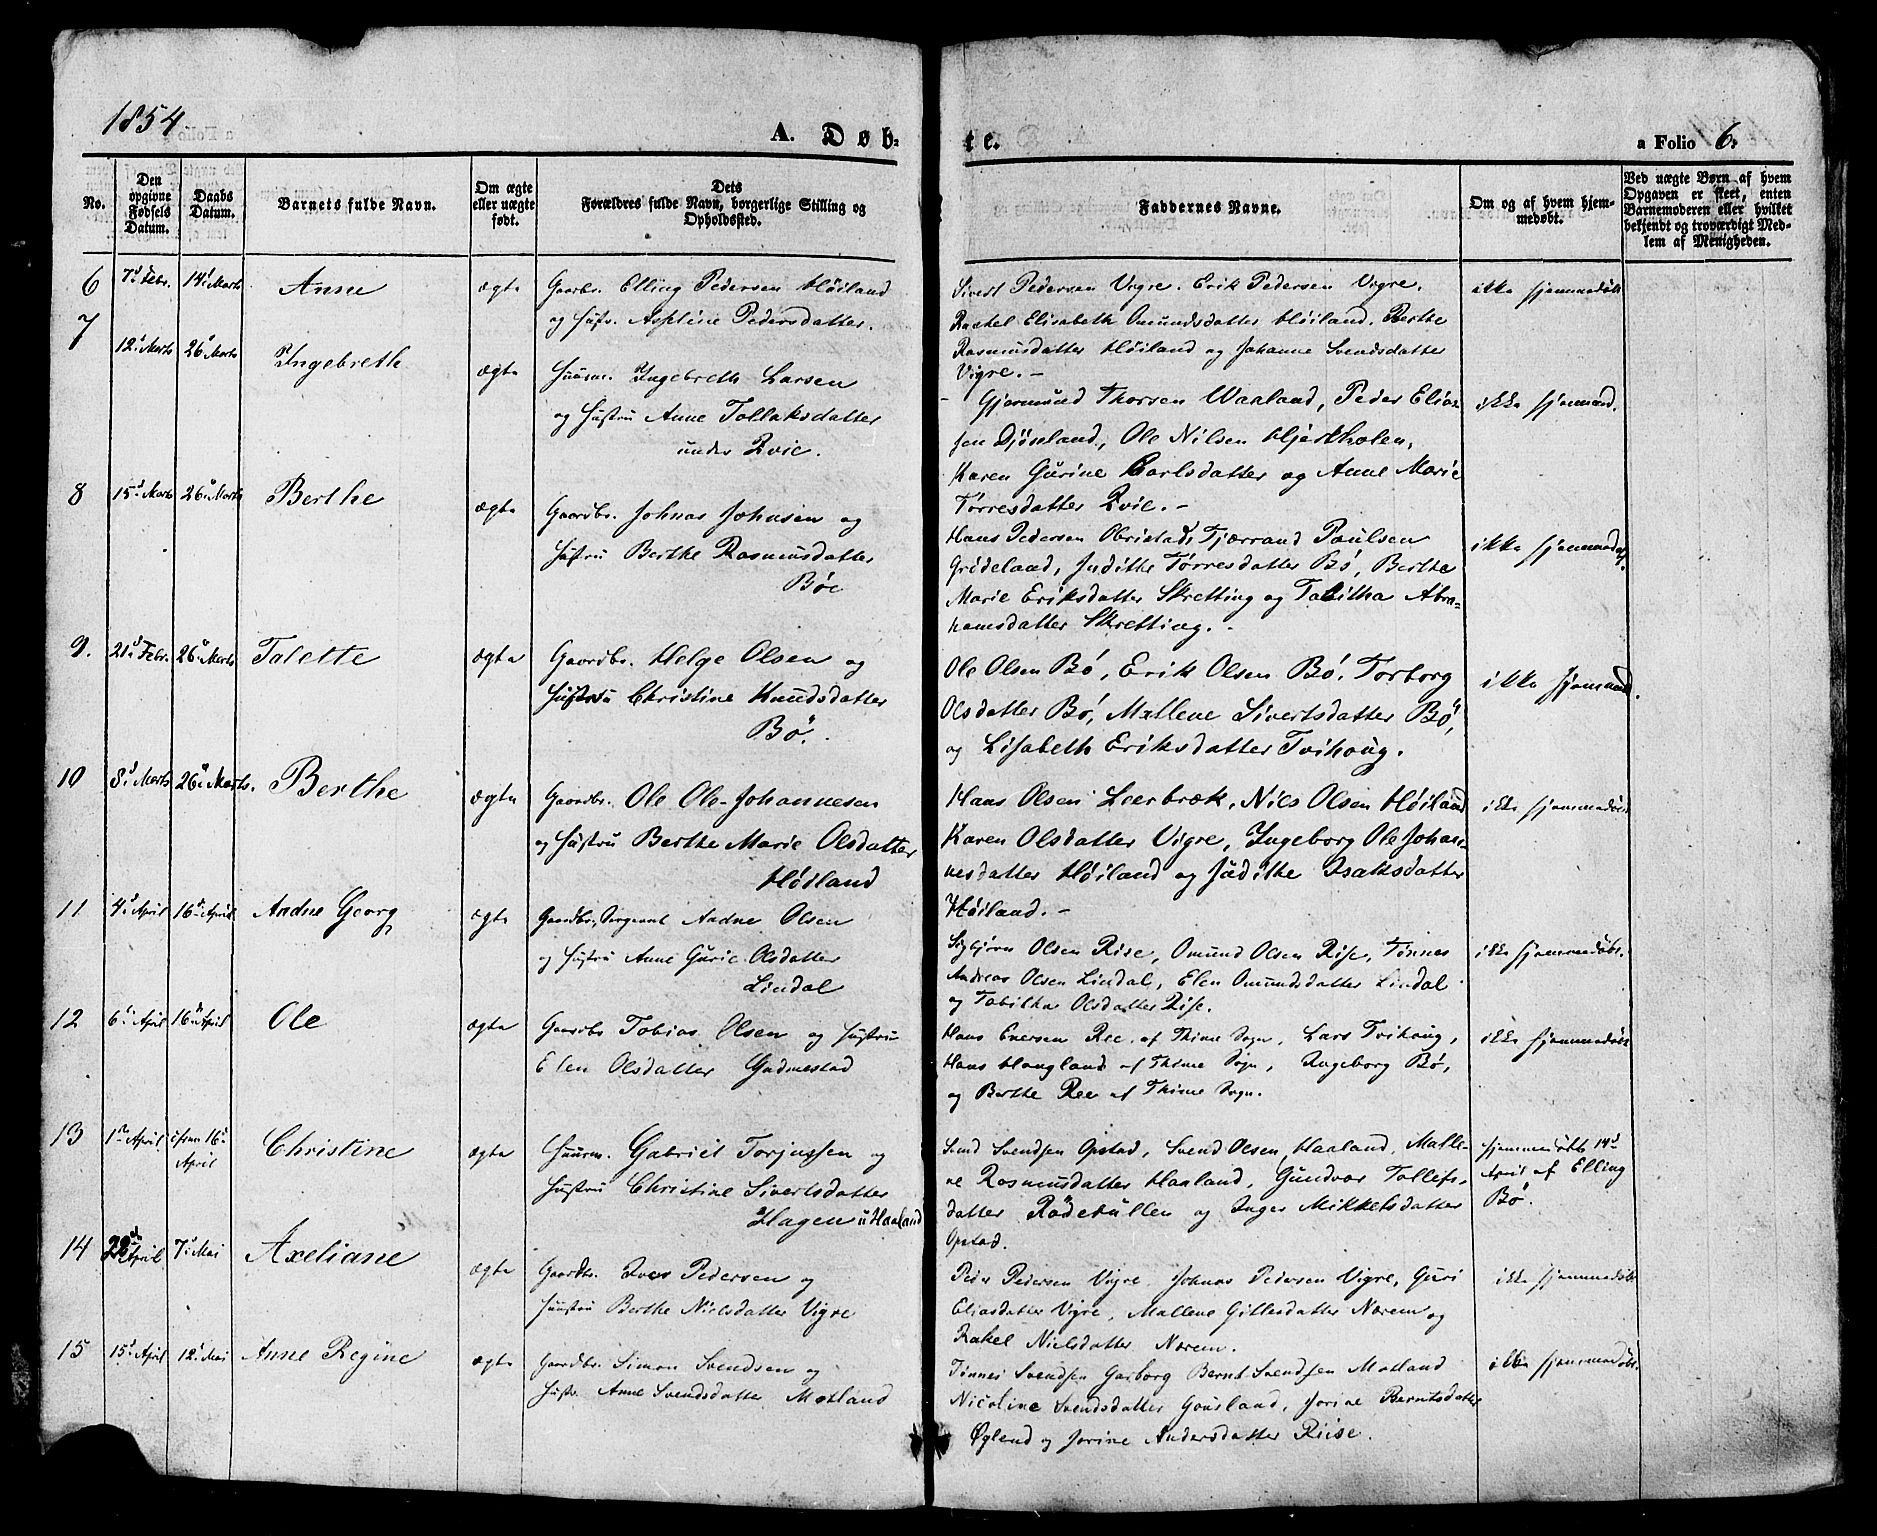 1854
A. Døb-
te.
a Folio 6.
No.
Den opgivne Fødsels Datum.
Daabs Datum.
Barnets fulde Navn.
Om ægte eller uægte født.
Dets Forældres fulde Navn, borgerlige Stilling og Opholdssted.
Faddernes Navne.
Om og af hvem hjemmedøbt.
Ved uægte Børn af hvem Opgaven er skeet, enten Barnemoderen eller hvilket bekjendt og troværdigt Medlem af Menigheden.
6 7d Febr. 14d Marts Anne ægte Gaardbr. Elling Pedersen Høiland
og Hustr. Aspeline Pedersdatter.
Sivert Pedersen Vigre. Erik Pedersen Vigre.
Rachel Elisabeth Omundsdatter Høiland. Berthe
Rasmusdatter Høiland og Johanne Svendsdatter
Vigre. -
ikke hjemmedøbt
7 12d Marts 26d Marts Ingebreth ægte Huusm. Ingebreth Larsen
og Hustru Anne Tollaksdatter
under Qvie.
Gjermund Thorsen Waaland, Peder Elias-
sen Djøseland, Ole Nilsen Hjerkholen,
Karen Gurine Carlsdatter og Anne Marie
Torresdatter Qvie. -
ikke hjemmed.
8 15d Marts 26d Marts Berthe ægte Gaardbr. Johnas Johnsen og
Hustru Berthe Rasmusdatter
Bøe
Hans Pedersen Obristad, Tjærrand Paulsen
Grødeland, Judithe Torresdatter Bø, Berthe
Marie Eriksdatter Skretting og Tabitha Abra-
hamsdatter Skretting. -
ikke hjemmedøbt.
9. 21d Febr. 26d Marts Talette ægte Gaardbr. Helge Olsen og
Hustru Christine Knudsdatter
Bø.
Ole Olsen Bø, Erik Olsen Bø, Torborg
Olsdatter Bø, Mallene Sivertsdatter Bø,
og Lisabeth Eriksdatter Tvihoug.
ikke hjemmed.
10 8d Marts 26d Marts. Berthe ægte Gaardbr. Ole Ole-Johannesen
og Hustru Berthe Marie Olsdatter
Høiland
Hans Olsen Leerbræk, Nils Olsen Høiland
Karen Olsdatter Vigre, Ingeborg Ole Johan-
nesdatter Høiland og Judithe Isaksdatter
Høiland. -
ikke hjemmedøbt
11 4d April 16d April Andne Georg ægte Gaardbr. Sergeant Andne Olsen
og Hustru Anne Gurie Olsdatter
Lindal
Sigbjørn Olsen Rise, Omund Olsen Rise, Tønnes
Andreas Olsen Lindal, Elen Omundsdatter Lindal
og Tabitha Olsdatter Rise.
ikke hjemmedøbt.
12 6d April 16d April Ole ægte Gaardbr Tobias Olsen og Hustru
Elen Olsdatter Gudmestad
Hans Enersen Ree af Thime Sogn, Lars Tvihoug,
Hans Haugland af Thime Sogn, Ingeborg Bø,
og Berthe Ree af Thime Sogn.
ikke hjemmedøbt
13 1d April 16d April Christine ægte Huusm. Gabriel Torjussen og
Hustru Christine Sivertsdatter
Hagen u/ Haaland
Svend Svendsen Opstad, Svend Olsen Haaland, Malle-
ne Rasmusdatter Haaland, Gundvor Tollefs-
datter Rødekullen og Inger Mikkelsdatter
Opstad.
hjemmedøbt 14d
April af Elling
Bø.
14 22d April 7d Mai Axeliane ægte Gaardbr. Iver Pedersen og
Huustru Berthe Nielsdatter Vigre
Peder Pedersen Vigre. Johnas Pedersen Vigre, Guri
Eliasdatter Vigre, Mallene Gittlesdatter Nærem og
Rakel Nielsdatter Nærem.
ikke hjemmedøbt
15 15d April 12d Mai Anne Regine ægte Gaardbr. Simon Svendsen og
Hustr. Anne Svendsdatter Motland
Tønnes Svendsen Garborg Bernt Svendsen Motland
Nicoline Svendsdatter Gousland, Jorine Berntsdatter
Øglend og Jorine Andersdatter Riise.
ikke hjemmedøbt.